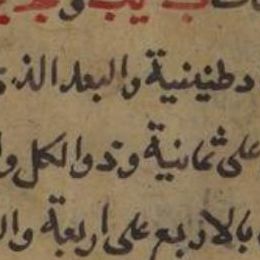 طنينية والبعد الذى
على ثمانية وذو الكل وا
بالاربع على اربعة وال